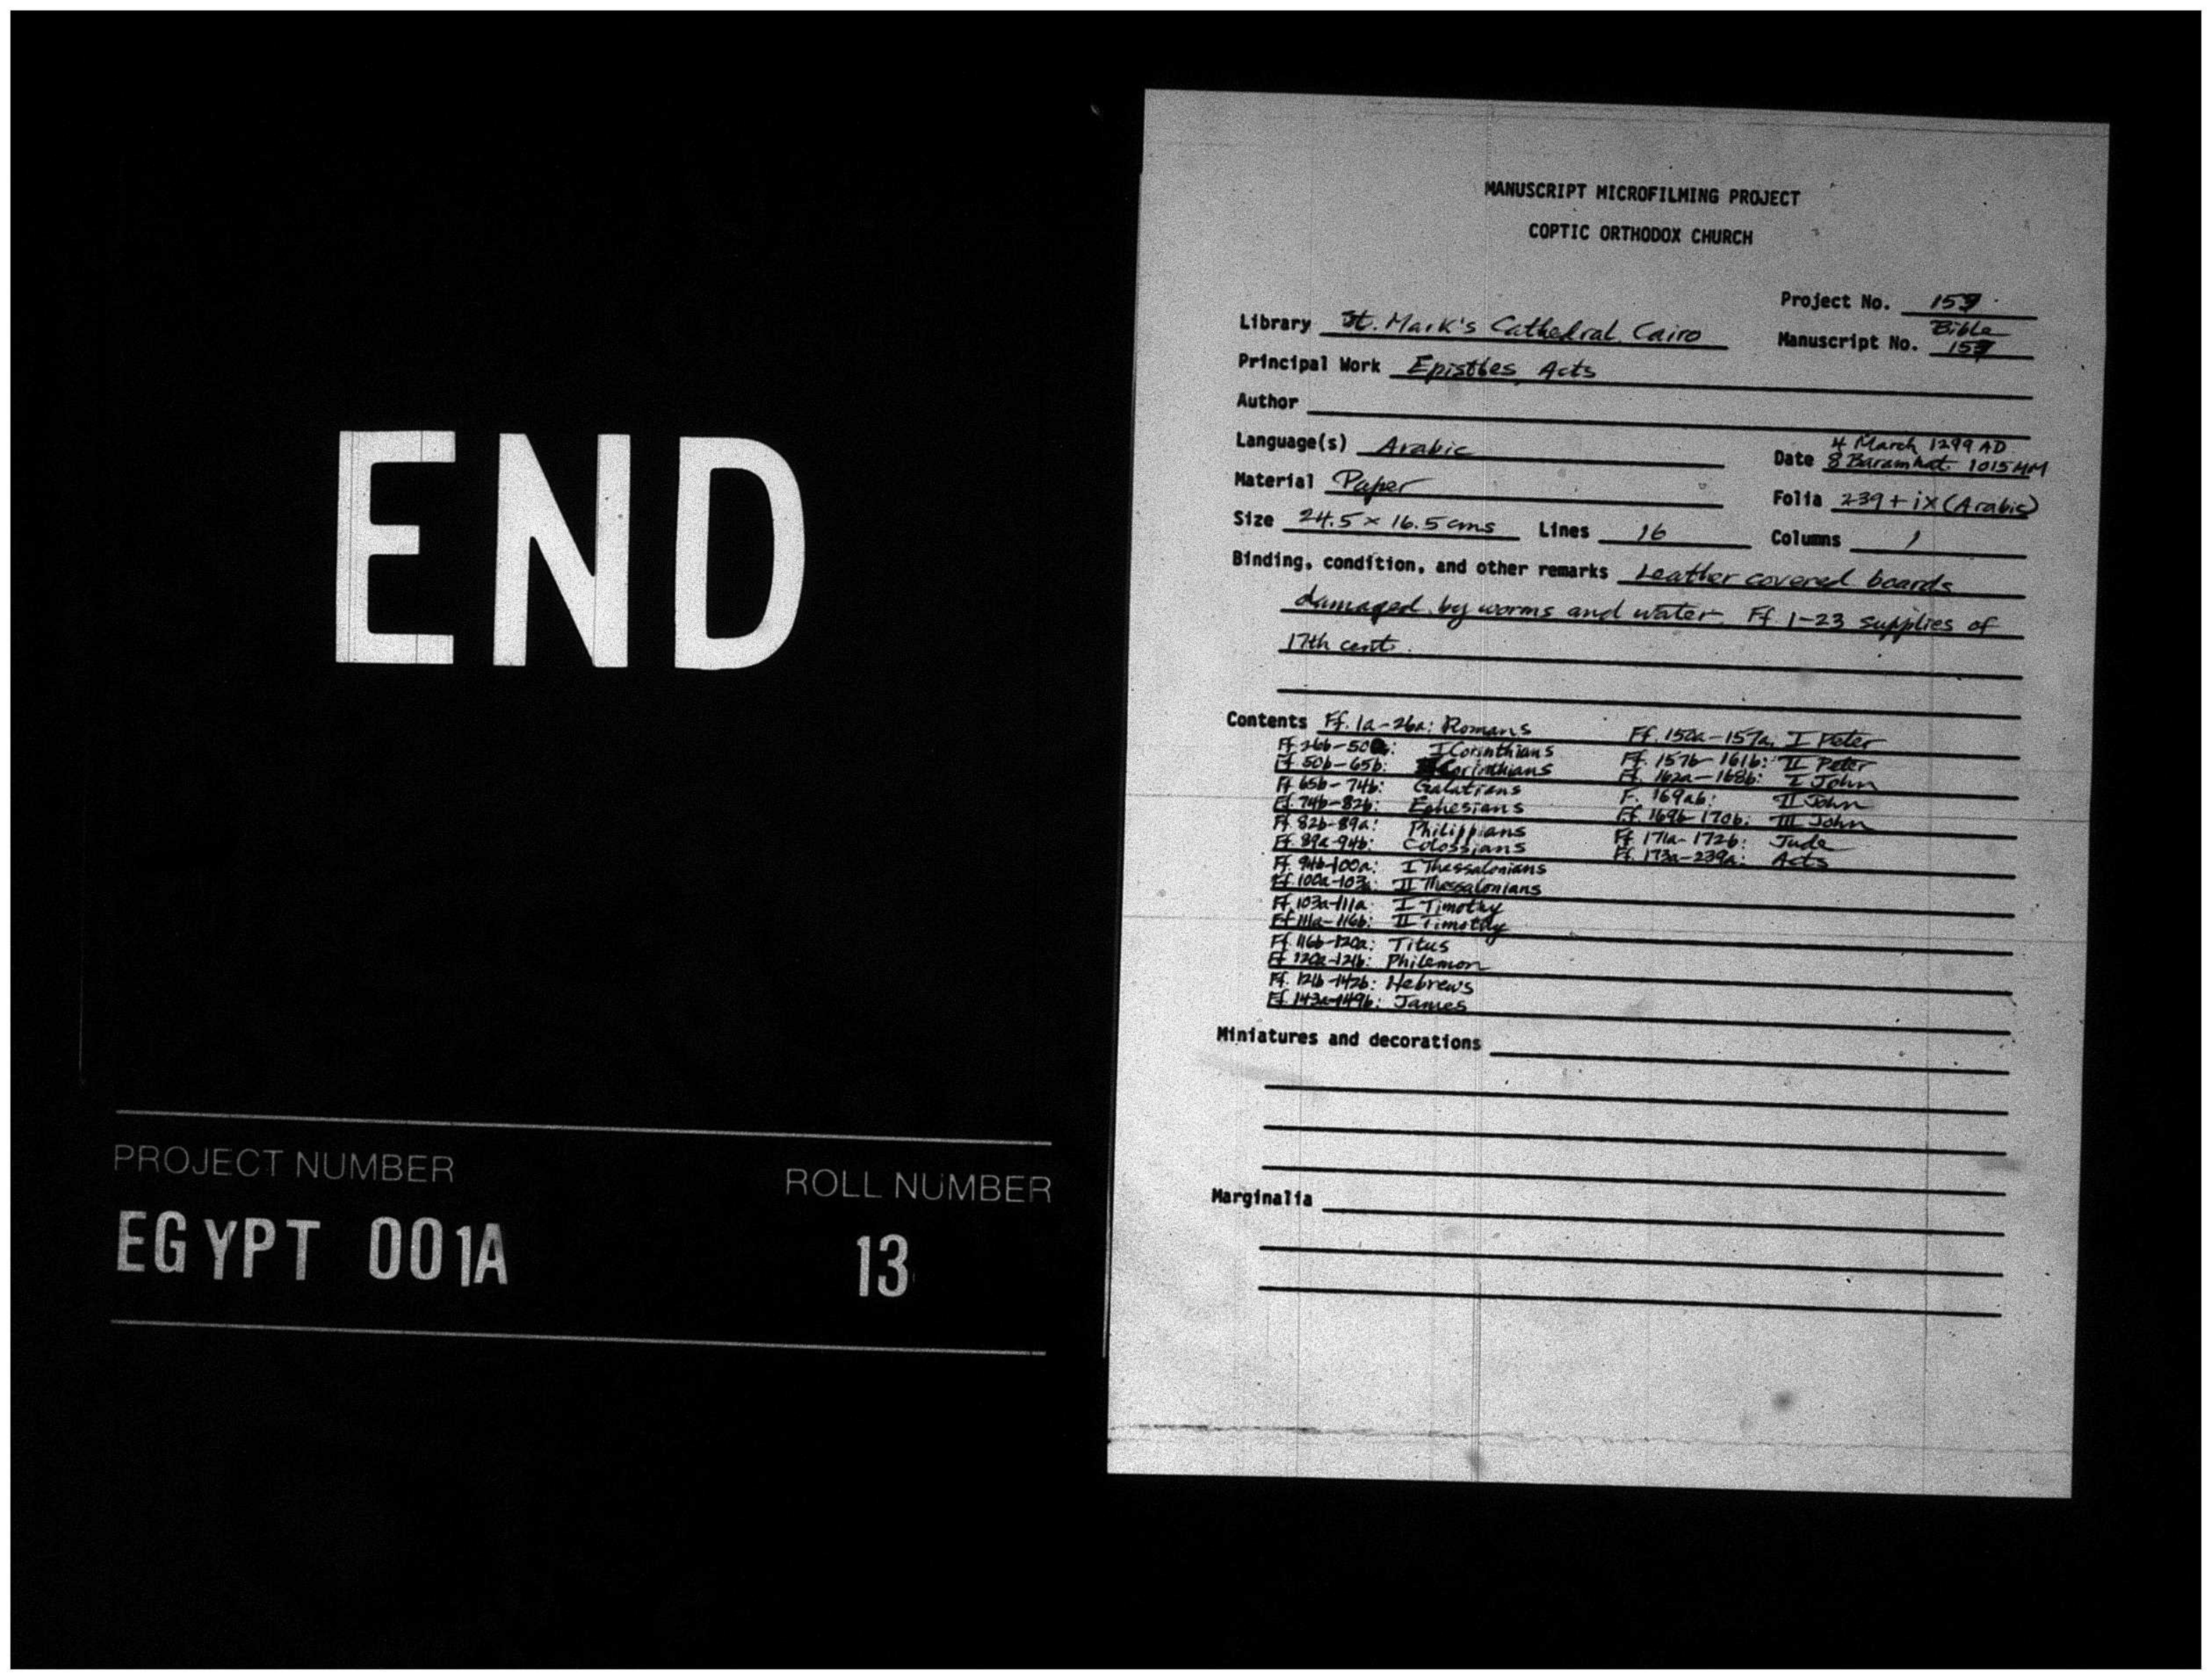 END
PROJECT NUMBER
ROLL NUMBER
EGYPT 001A
13
MANUSCRIPT MICROFILMING PROJECT
COPTIC ORTHODOX CHURCH
Project No.
Library St. Mark's Cathedral, Cairo
Bible
Manuscript No.
Principal Work Epistles, Acts
Author
Language(s) Arabic
4 March 1299 AD
Date 8 Baramhat 1015 MM
Material Paper
Folia 239 + ix (Arabic)
Size 24.5 × 16.5 cms Lines 16 Columns 1
Binding, condition, and other remarks Leather covered boards
damaged by worms and water. Ff. 1-23 supplies of
17th cent.
Contents Ff. 1a-26a: Romans
Ff. 26b-50: I Corinthians
Ff. 50b-65b: Corinthians
Ff. 65b-74b: Galatians
Ff. 74b-82b: Ephesians
Ff. 82b-89a: Philippians
Ff. 89a-94b: Colossians
Ff. 94b-100a: I Thessalonians
Ff. 100a-103a: II Thessalonians
Ff. 103a-111a: I Timothy
Ff. 111a-116b: II Timothy
Ff. 116b-120a: Titus
Ff. 120a-121b: Philemon
Ff. 121b-142b: Hebrews
Ff. 143a-149b: James
Ff. 150a-157a: I Peter
Ff. 157b-161b: II Peter
Ff. 162a-168b: I John
F. 169ab: II John
Ff. 169b-170b: III John
Ff. 171a-172b: Jude
Ff. 173a-239a: Acts
Miniatures and decorations
Marginalia